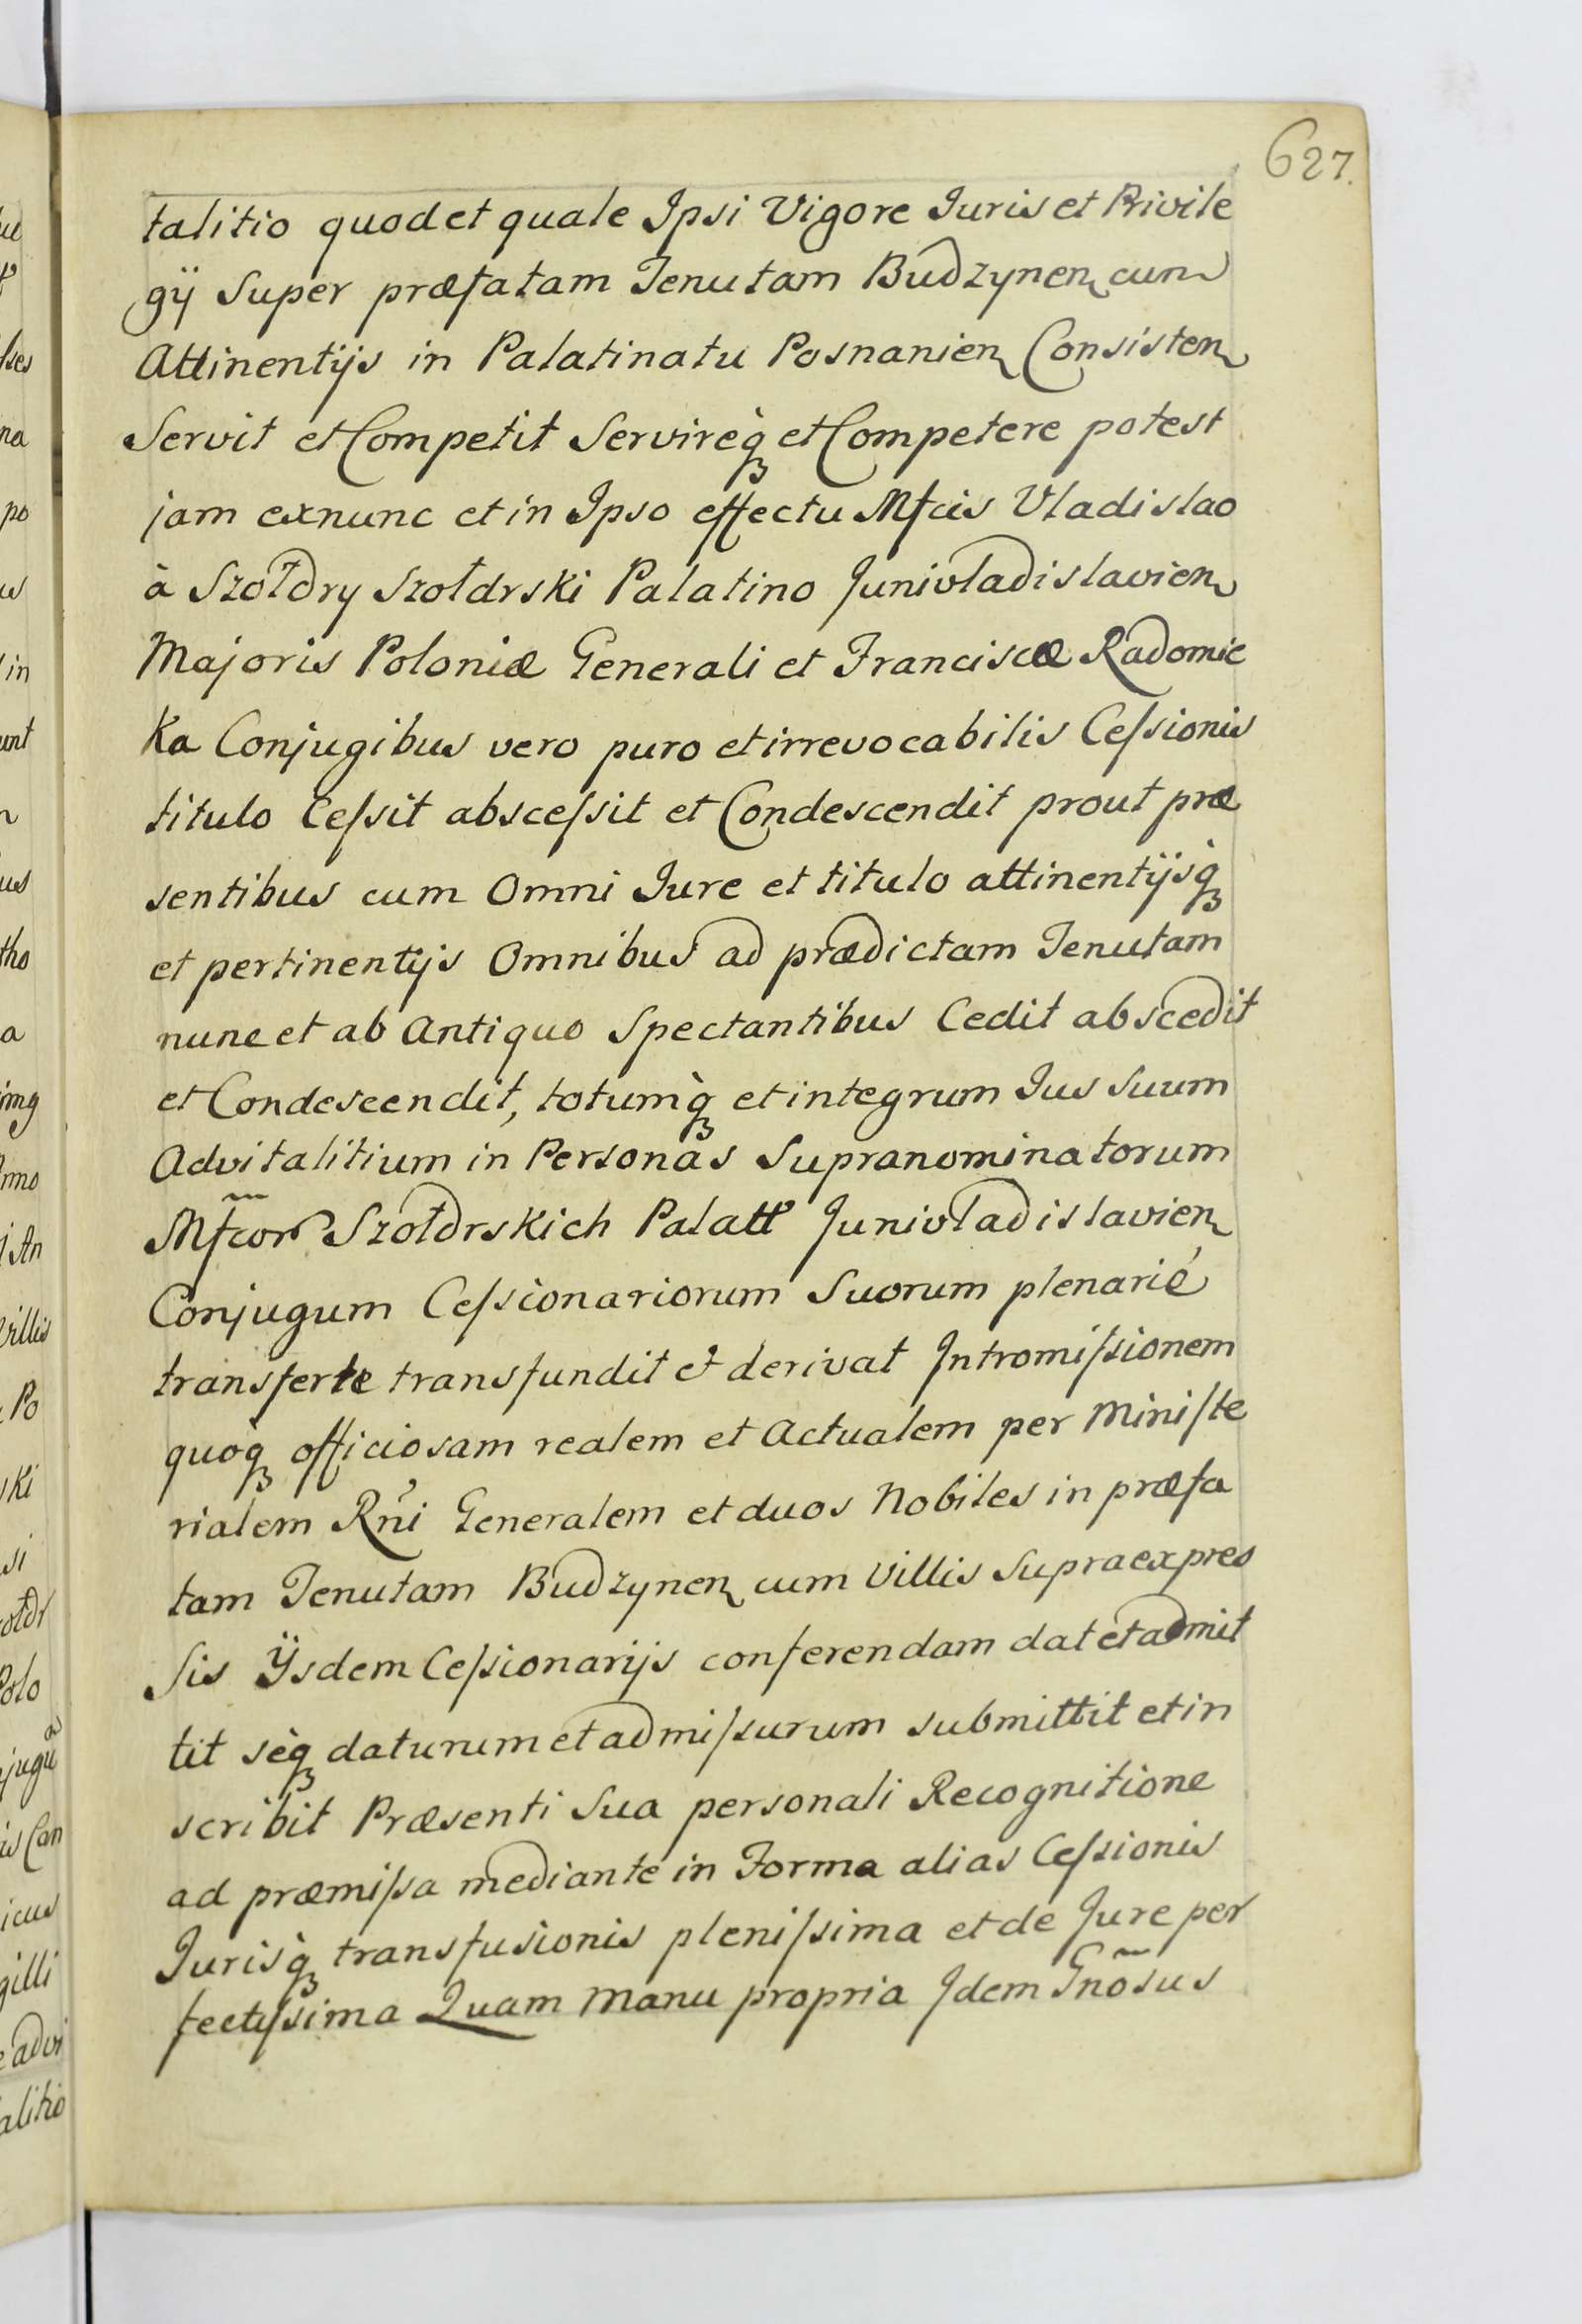 627.
talitio quod et quale Ipsi Vigore Iuris et Privile
gÿ Super præfatam Tenutam Budzynen cum
Attinentijs in Palatinatu Posnanien Consisten
Servit et Competit Servireq̀ꝫ et Competere potest
jam exnunc et in Ipso effectu Mfcis Vladislao
à Szołdry Szołdrski Palatino Junivladislavien
Majoris Poloniæ Generali et Franciscæ Radomic
ka Conjugibus vero puro et irrevocabilis Ceſsionis
titulo Ceſsit absceſsit et Condescendit prout præ
sentibus cum Omni Iure et titulo attinentÿsq̀ꝫ
et pertinentijs Omnibus ad prædictam Tenutam
nunc et ab Antiquo Spectantibus Cedit abscedit
et Condescendit, totumq̀ꝫ et integrum Ius Suum
Advitalitium in Personas Supranominatorum
Mfcor Szołdrskich Palatt Junivladislavien
Conjugum Ceſsionariorum Suorum plenarié
transferte transfundit et derivat Intromiſsionem
quoqꝫ officiosam realem et Actualem per Miniſte
rialem Rńi Generalem et duos Nobiles in præfa
tam Tenutam Budzynen cum Villis Supraexpres
Sis Ÿsdem Ceſsionarijs conferendam dat et admit
tit seq̀ꝫ daturum et admiſsurum submittit et in
scribit Præsenti Sua personali Recognitione
ad præmiſsa mediante in Forma alias Ceſsionis
Jurisq̀ꝫ transfusionis pleniſsima et de Jure per
fectiſsima Quam Manu propria Idem Gnõsus